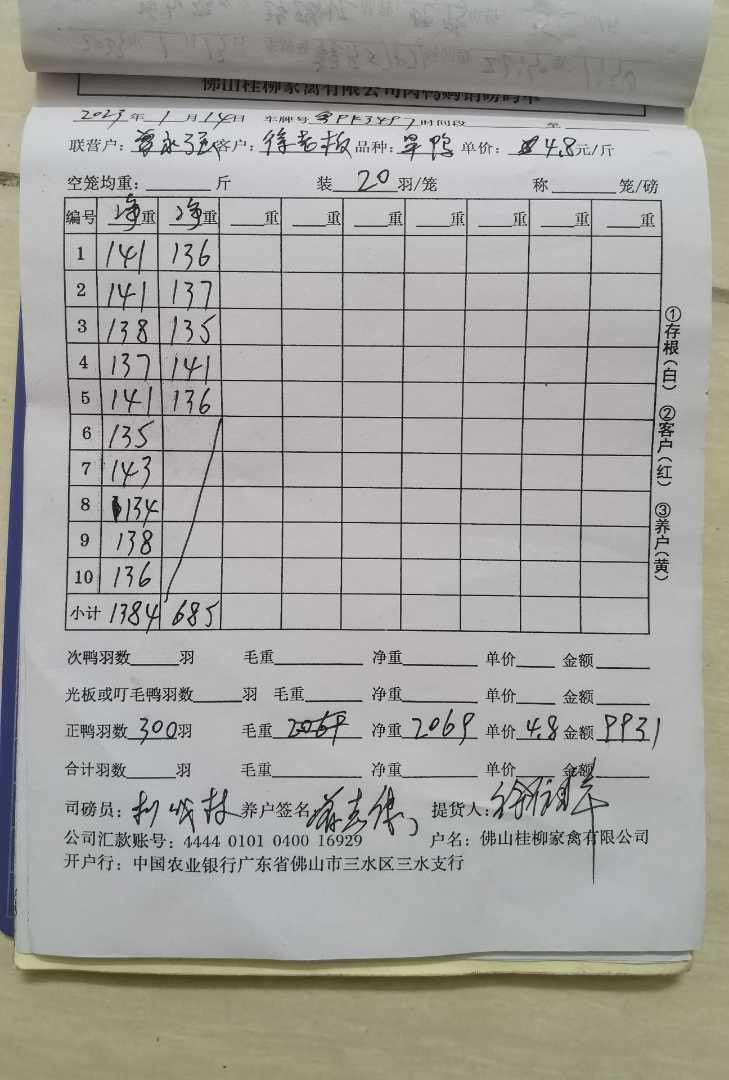 佛山桂柳家禽有限公司肉鸭购销磅码单
2023年1月14日 车牌号 粤PK3497 时间段 至
联营户：曾永强 客户：徐老板 品种：旱鸭 单价：4.8元/斤
空笼均重： 斤 装 20 羽/笼 称 笼/磅
编号 净重 净重 重 重 重 重 重 重 重
1 141 136
2 141 137
3 138 135
4 137 141
5 141 136
6 135
7 143
8 134
9 138
10 136
小计 1384 685
①存根（白） ②客户（红） ③养户（黄）
次鸭羽数 羽 毛重 净重 单价 金额
光板或叮毛鸭羽数 羽 毛重 净重 单价 金额
正鸭羽数 300羽 毛重 2069 净重 2069 单价 4.8 金额 9931
合计羽数 羽 毛重 净重 单价 金额
司磅员： 养户签名 提货人：
公司汇款账号：4444 0101 0400 16929 户名：佛山桂柳家禽有限公司
开户行：中国农业银行广东省佛山市三水区三水支行